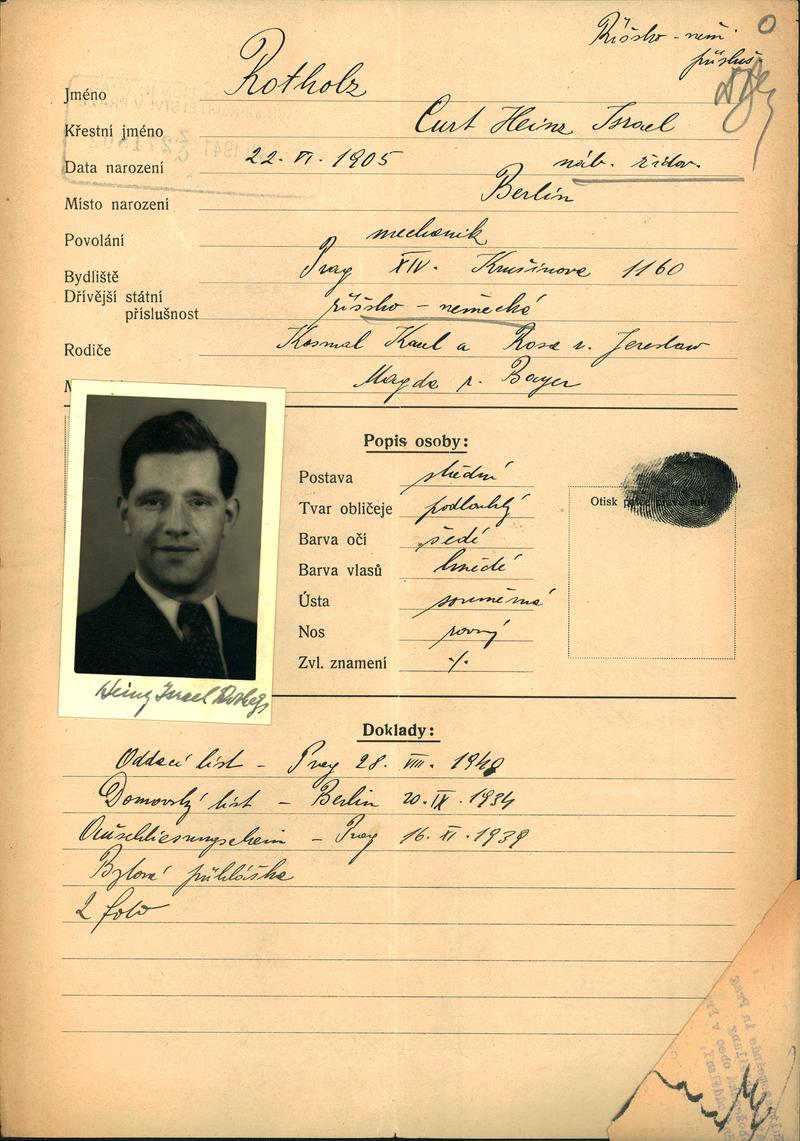 Říšsko-něm.
přísluš.
Jméno Rotholz
Křestní jméno Curt Heinz Israel
Data narození 22. VI. 1905 náb. židov.
Místo narození Berlin
Povolání mechanik
Bydliště Prag XIV. Krušinova 1160
Dřívější státní
příslušnost říšsko-německá
Rodiče Kosmal Karl a Rosa r. Jereslaw
Magda r. Bayer
Popis osoby:
Postava střední
Tvar obličeje podlouhlý
Barva očí šedé
Barva vlasů hnědé
Ústa souměrná
Nos rovný
Zvl. znamení ·/·
Otisk
Heinz Israel Rotholz
Doklady:
Oddací list - Prag 28. VIII. 1940
Domovský list - Berlin 20. IX. 1934
Prag 16. XI. 1939
Bytová přihláška
2 foto